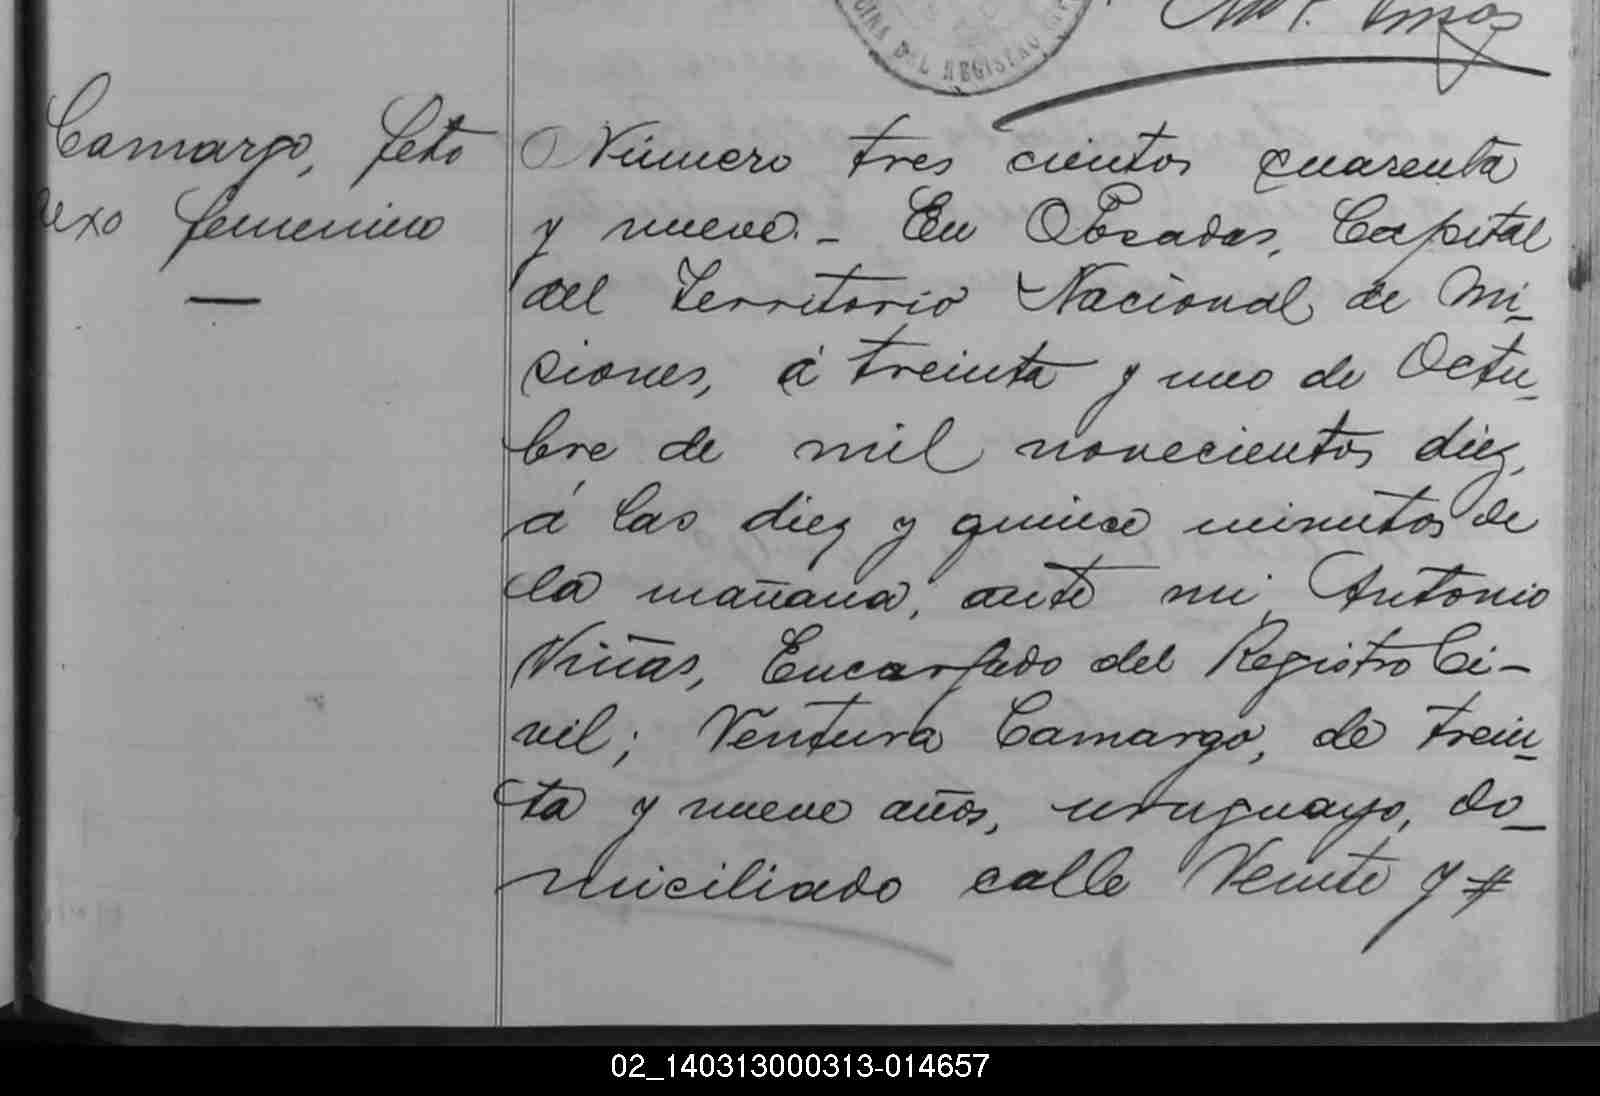 OFICINA DEL REGISTRO
Camargo, feto
sexo femenino
Número tres cientos cuarenta
y nueve. - En Posadas, Capital
del Territorio Nacional de Mi-
siones, á treinta y uno de Octu-
bre de mil novecientos diez,
á las diez y quince minutos de
la mañana, ante mi, Antonio
Viñas, Encargado del Registro Ci-
vil; Ventura Camargo, de trein-
ta y nueve años, uruguayo, do-
miciliado calle Veinte y #
02_140313000313-014657